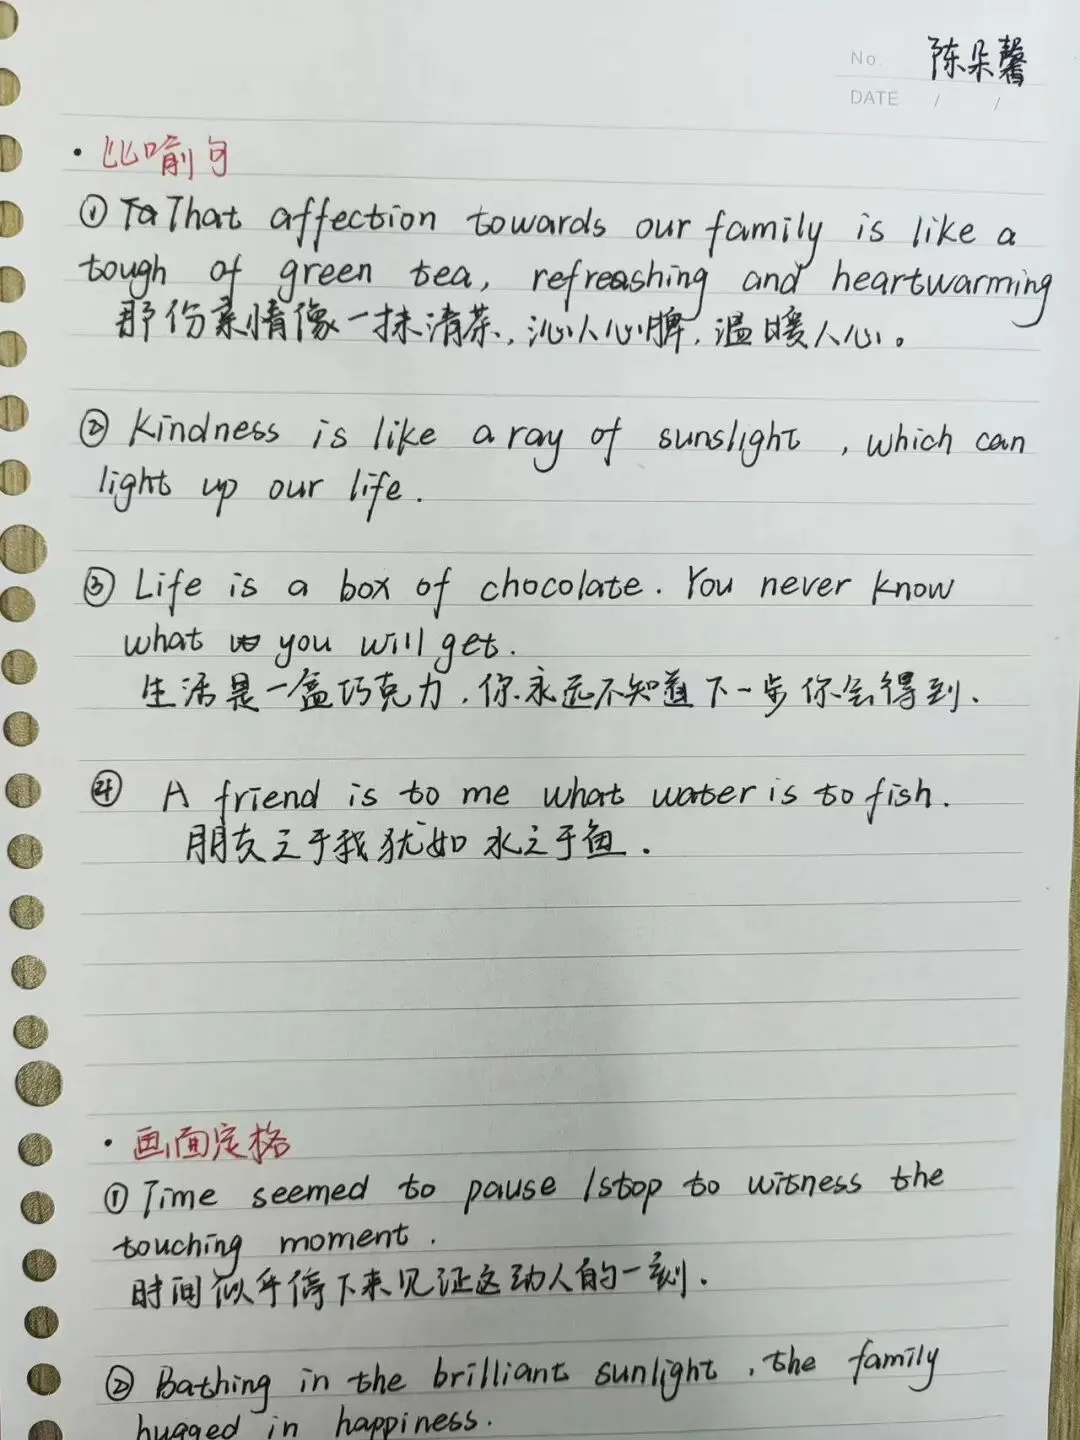 No. 陈朵馨
DATE / /
• 比喻句
① Ta That affection towards our family is like a
tough of green tea, refreashing and heartwarming
那份亲情像一抹清茶,沁人心脾,温暖人心。
② Kindness is like a ray of sunslight , which can
light up our life.
③ Life is a box of chocolate. You never know
what you will get.
生活是一盒巧克力,你永远不知道下一步你会得到.
④ A friend is to me what water is to fish.
朋友之于我犹如水之于鱼.
• 画面定格
① Time seemed to pause /stop to witness the
touching moment.
时间似乎停下来见证这动人的一刻.
② Bathing in the brilliant sunlight, the family
hugged in happiness.